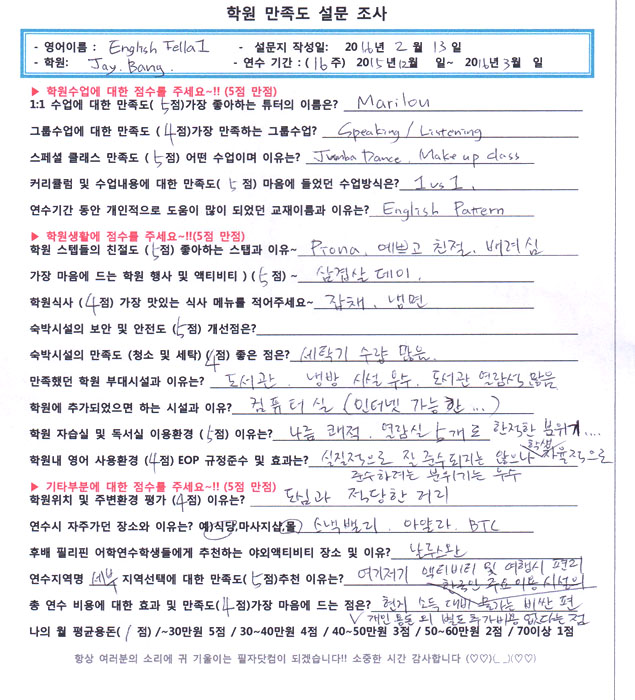 학원 만족도 설문 조사
- 영어이름 : English Fella 1 - 설문지 작성일: 2016년 2월 13일
- 학원: Jay. Bang. - 연수 기간 : (16주) 2015년 12월 일~ 2016년 3월 일
▶ 학원수업에 대한 점수를 주세요~!! (5점 만점)
1:1 수업에 대한 만족도( 5점)가장 좋아하는 튜터의 이름은? Marilou
그룹수업에 대한 만족도 ( 4점)가장 만족하는 그룹수업? Speaking / Listening
스페셜 클래스 만족도 ( 5점) 어떤 수업이며 이유는? Jumba Dance. Make up class
커리큘럼 및 수업내용에 대한 만족도( 5점) 마음에 들었던 수업방식은? 1 vs 1.
연수기간 동안 개인적으로 도움이 많이 되었던 교재이름과 이유는? English Pattern
▶ 학원생활에 점수를 주세요~!!(5점 만점)
학원 스텝들의 친절도 ( 5점) 좋아하는 스탭과 이유~ Piona. 예쁘고 친절. 배려심
가장 마음에 드는 학원 행사 및 액티비티 ) ( 5점) ~ 삼겹살 데이.
학원식사 ( 4점) 가장 맛있는 식사 메뉴를 적어주세요~ 잡채. 냉면
숙박시설의 보안 및 안전도 ( 5점) 개선점은?
숙박시설의 만족도 (청소 및 세탁) ( 4점) 좋은 점은? 세탁기 수량 많음.
만족했던 학원 부대시설과 이유는? 도서관. 냉방 시설 우수. 도서관 열람석 많음
학원에 추가되었으면 하는 시설과 이유? 컴퓨터 실 (인터넷 가능한 ...)
학원 자습실 및 독서실 이용환경 ( 5점) 이유는? 나름 쾌적. 열람실 5개로 한적한 분위기....
학원내 영어 사용환경 ( 4점) EOP 규정준수 및 효과는? 실질적으로 잘 준수되지는 않으나 학생 자율적으로
준수하려는 분위기는 우수
▶ 기타부분에 대한 점수를 주세요~!! (5점 만점)
학원위치 및 주변환경 평가 ( 4점) 이유는? 도심과 적당한 거리
연수시 자주가던 장소와 이유는? 예)식당,마사지샵,몰 스낵밸리. 아얄라. BTC
후배 필리핀 어학연수학생들에게 추천하는 야외액티비티 장소 및 이유? 날루스완
연수지역명 세부 지역선택에 대한 만족도 ( 5점)추천 이유는? 여기저기 액티비티 및 여행시 편리
한국인 주요 이용 시설의
총 연수 비용에 대한 효과 및 만족도( 4점)가장 마음에 드는 점은? 현지 소득 대비 물가는 비싼 편
개인 용돈 외 별도 추가비용 없다는 점
나의 월 평균용돈( 1점) /~30만원 5점 / 30~40만원 4점 / 40~50만원 3점 / 50~60만원 2점 / 70이상 1점
항상 여러분의 소리에 귀 기울이는 필자닷컴이 되겠습니다!! 소중한 시간 감사합니다 (♡♡)(_ _)(♡♡)